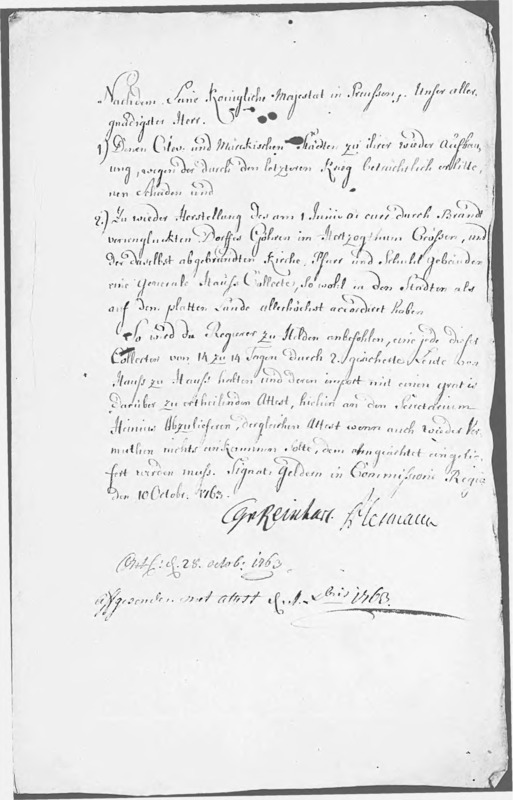 Nachdem Seine Königliche Majestät in Preussen, Unser aller
gnädigster Herr.
1) Denen Clev. und Märckischen Städten zu ihrer wieder Aufbau
ung, wegen der durch den letzteren Krieg beträchtlich erlitte,
nen Schäden und
2.) Zu wieder Herstellung des am 1 Junii a: curr: durch Brandt
verunglückten Dorffes Göhren im Hertzogthum Crossen, und
der daselbst abgebrandten Kirche, Pfarr und Schuhl gebäuden
eine Generale Hauss Collecte, so wohl in den Städten als
auf den platten Lande allerhöchst accordiert haben
So wird dem Regierer zu Hilden anbefohlen, eine jede dieser
Collecten von 14 zu 14 Tagen durch 2. gesicherte Leute von
Hauss zu Hauss halten und deren import mit einen gratis
darüber zu ertheilenden Attest, hiehin an den Secretarium
Heinius Abzulieferen, dergleichen Attest wenn auch wieder Ver
muthen nichts einkommen solte, dem ohngeachtet eingelie,
fert werden muss. Signat: Geldern in Commissione Regia
den 10 Octobr. 1763.
Reinhart. Hermann
Ontf: d. 28. octob: 1763.
affgesonden met attest d. 1. bris 1763.